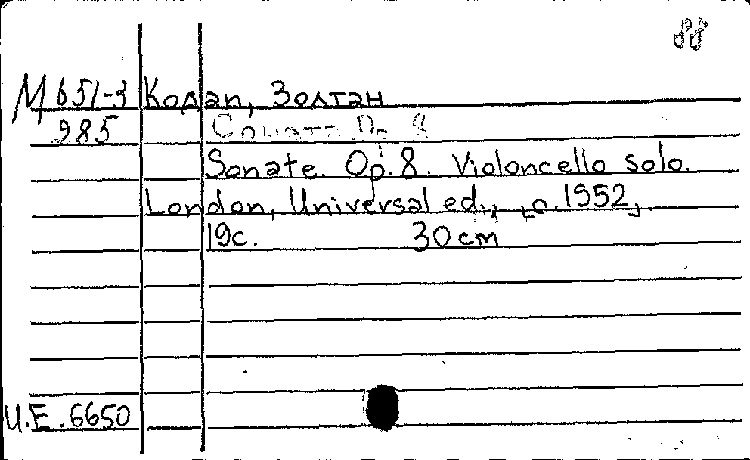 88
М 651-3 Кодап, Золтан
985 Соната Op 8
Sonate. Op. 8. Violoncello solo.
London, Universal ed., [c. 1952].
19с. 30 cm
U.E. 6650